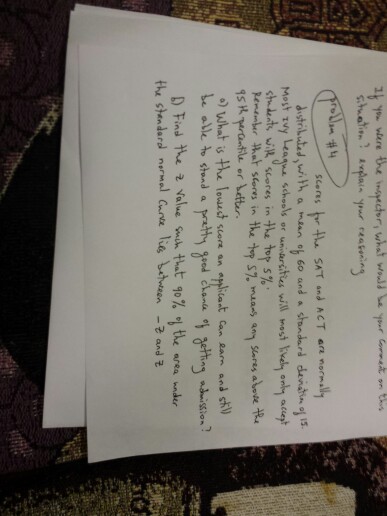 If you were the inspector, what would be your comment on this
situation? explain your reasoning
Problem #4
scores for the SAT and ACT are normally
distributed, with a mean of 60 and a standard deviation of 15
Most Ivy League schools or universities will most likely only accept
students with scores in the top 5%.
Remember that scores in the top 5% means any scores above the
95th percentile or better.
a) What is the lowest score an applicant can earn and still
be able to stand a pretty good chance of getting admission?
D) Find the z value such that 90% of the area under
the standard normal curve lies between -z and z